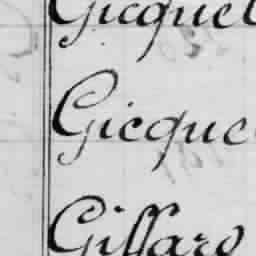 Gicquel
Gicque
Gillard